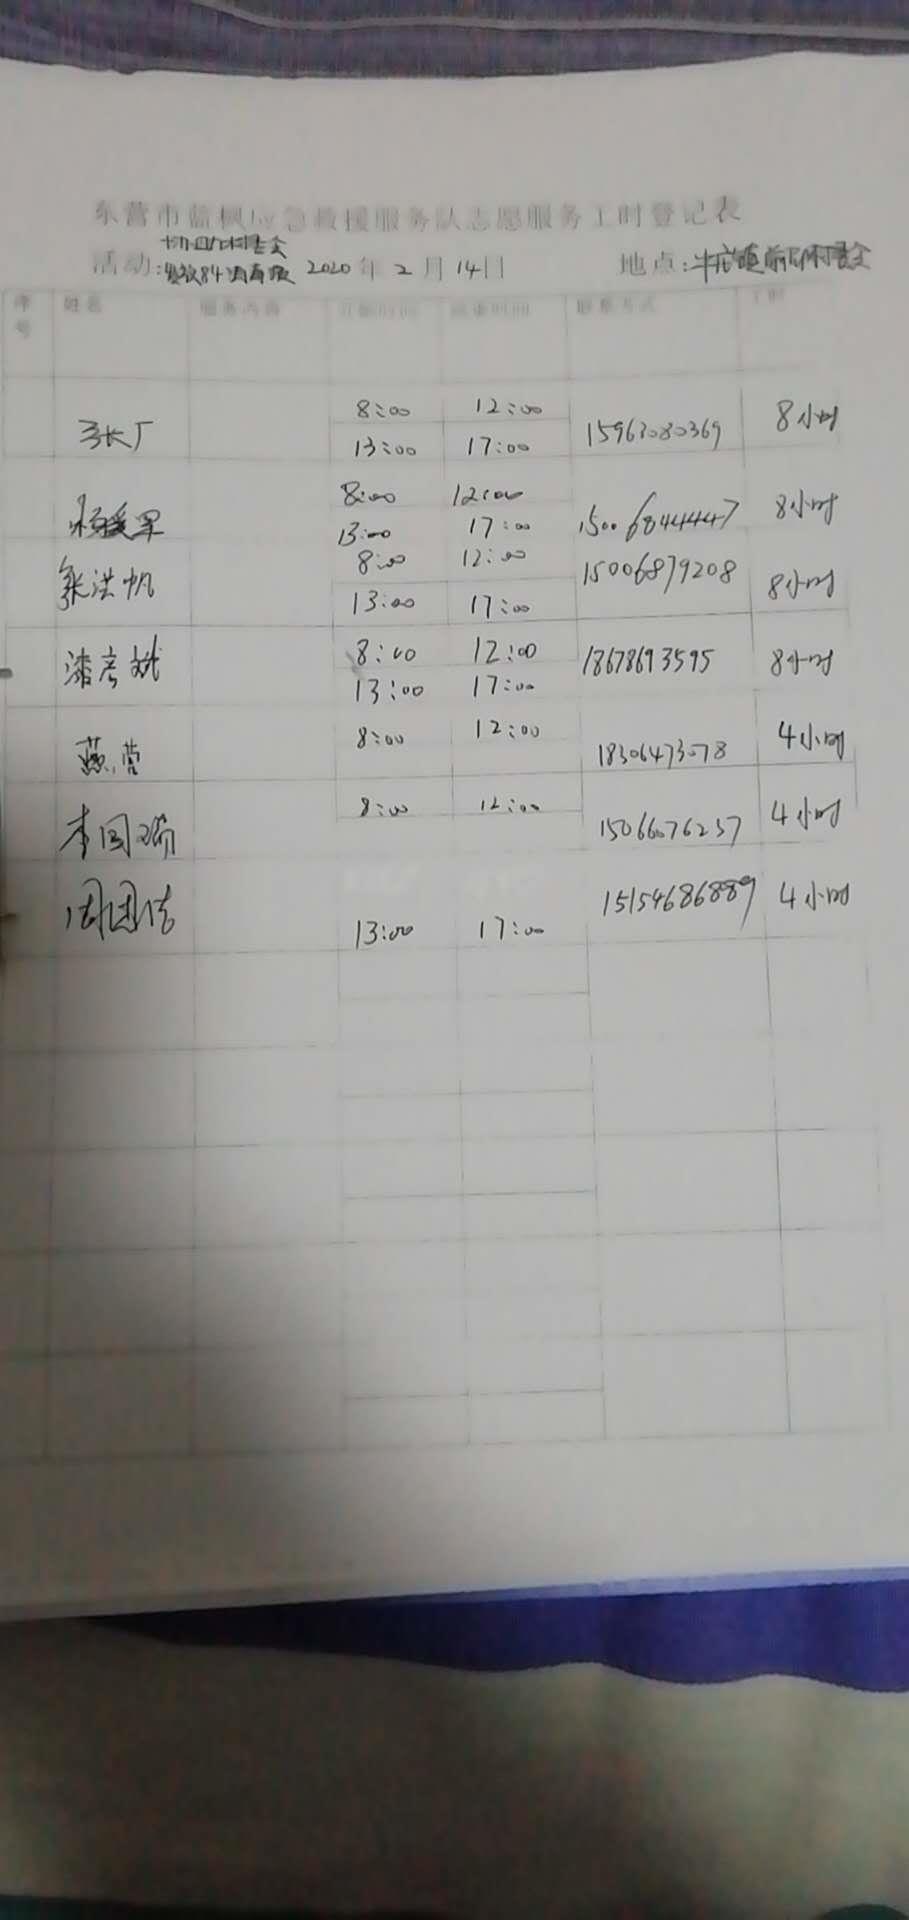 东营市蓝枫应急救援服务队志愿服务工时登记表
活动: 84消毒液 2020年2月14日 地点:牛庄镇
序号 姓名 服务内容 开始时间 结束时间 联系方式 工时
8:00 12:00
13:00 17:00 15963080369 8小时
8:00 12:00
13:00 17:00 15006844447 8小时
张洪帆 8:00 12:00 15006879208 8小时
13:00 17:00
漆彦斌 8:00 12:00 18678693595 8小时
13:00 17:00
燕营 8:00 12:00 18306473078 4小时
李国瑞 8:00 12:00 15066076237 4小时
周团结 13:00 17:00 15154686889 4小时